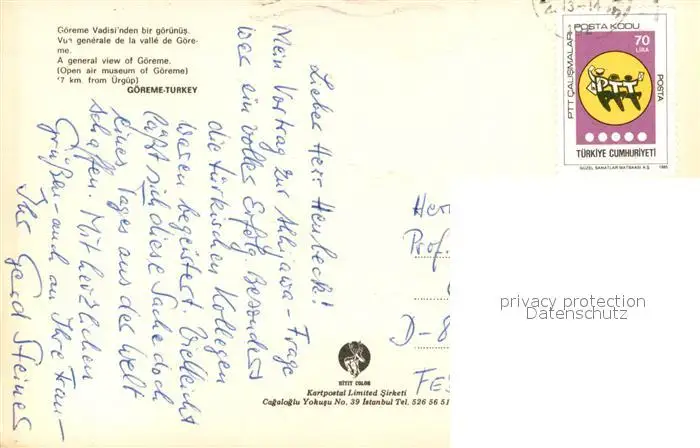 Göreme Vadisi'nden bir görünüş.
Vue générale de la vallé de Göre-
me.
A general view of Göreme.
(Open air museum of Göreme)
'7 km. from Ürgüp)
GÖREME-TURKEY
Lieber Herr Heubeck!
Mein Vortrag zur Ahhijawa-Frage
war ein voller Erfolg. Besonders
die türkischen Kollegen
waren begeistert. Vielleicht
läßt sich diese Sache doch
eines Tages aus der Welt
schaffen. Mit herzlichen
Grüßen - auch an Ihre Frau -
Ihr Gerd Steiner
13-14
PTT ÇALIŞMALARI - POSTA KODU
70
LİRA
PTT
POSTA
TÜRKİYE CUMHURİYETİ
GÜZEL SANATLAR MATBAASI A.Ş. 1985
Her
Prof.
D-8
privacy protection
Datenschutz
HİTİT COLOR
Kartpostal Limited Şirketi
Cağaloğlu Yokuşu No. 39 İstanbul Tel. 526 56 51